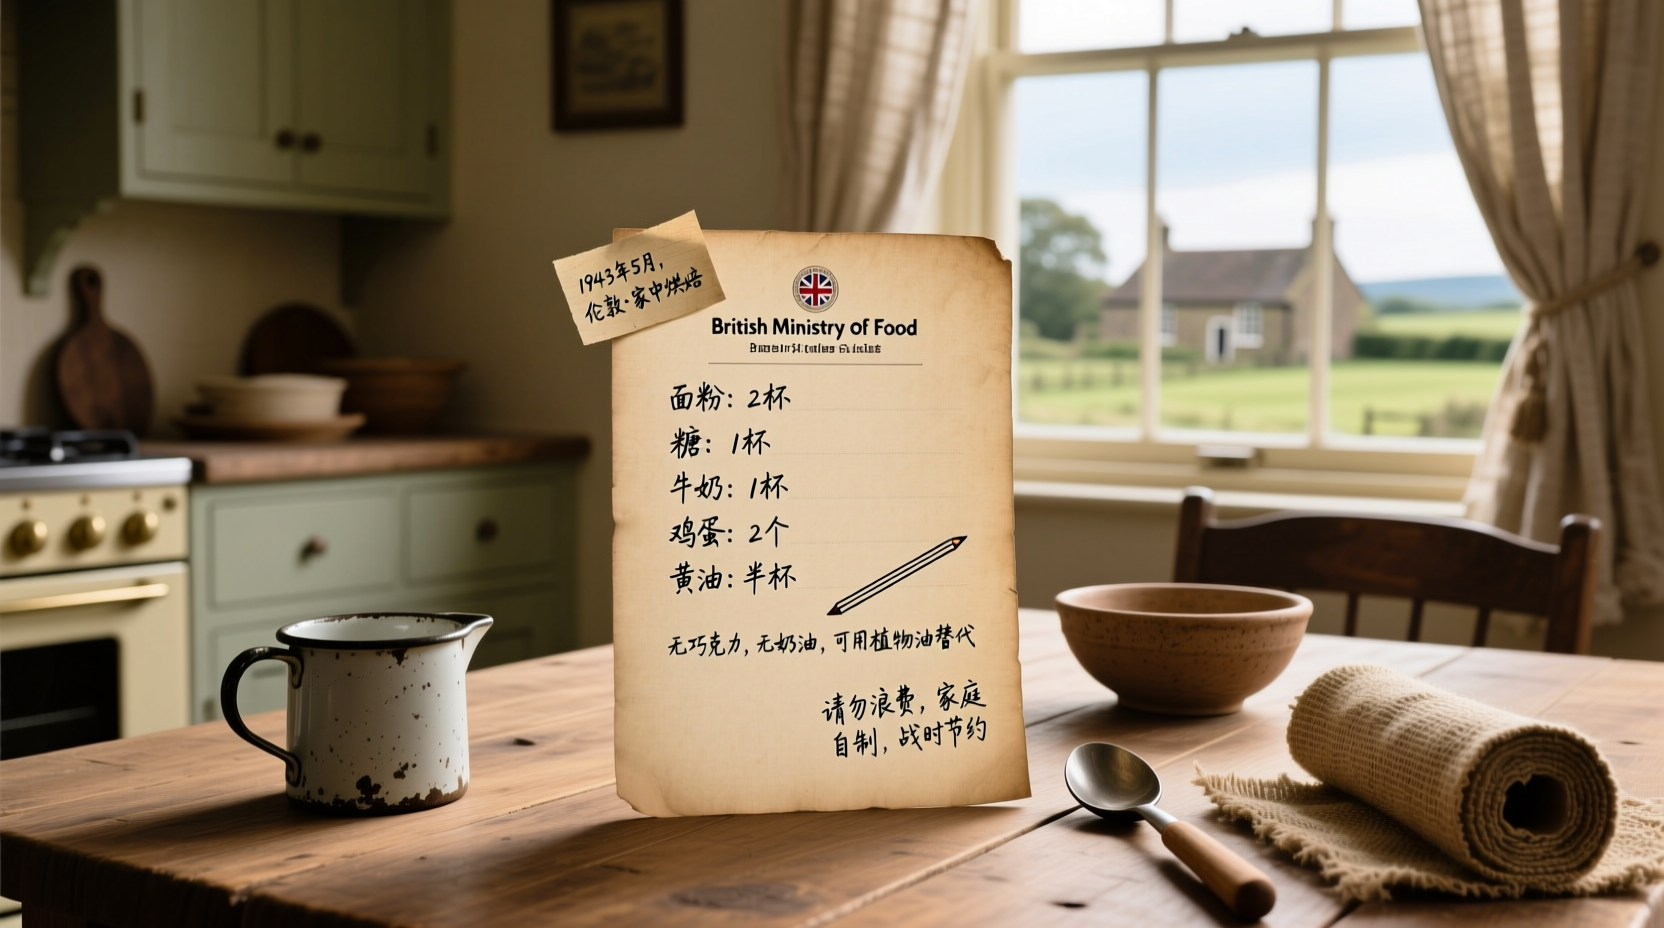 1943年5月,
伦敦·家中烘焙
British Ministry of Food
面粉: 2杯
糖: 1杯
牛奶: 1杯
鸡蛋: 2个
黄油: 半杯
无巧克力, 无奶油, 可用植物油替代
请勿浪费, 家庭
自制, 战时节约